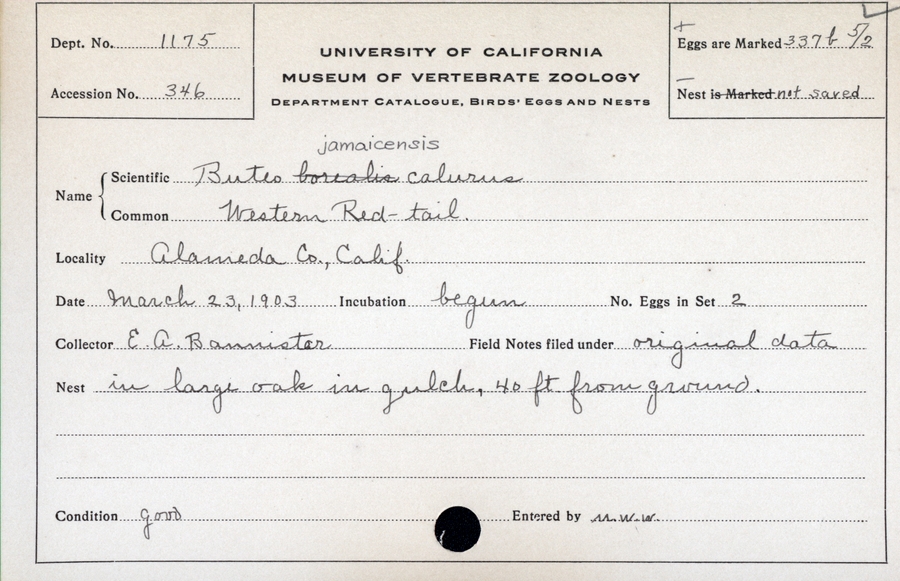 Dept. No. 1175
Accession No. 346
UNIVERSITY OF CALIFORNIA
MUSEUM OF VERTEBRATE ZOOLOGY
DEPARTMENT CATALOGUE, BIRDS' EGGS AND NESTS
+
Eggs are Marked 337b 5/2
–
Nest is Marked not saved
jamaicensis
Name { Scientific Buteo borealis calurus
Common Western Red-tail.
Locality Alameda Co., Calif.
Date March 23, 1903 Incubation begun No. Eggs in Set 2
Collector E. A. Bannister Field Notes filed under original data
Nest in large oak in gulch, 40 ft from ground.
Condition good Entered by M.W.W.